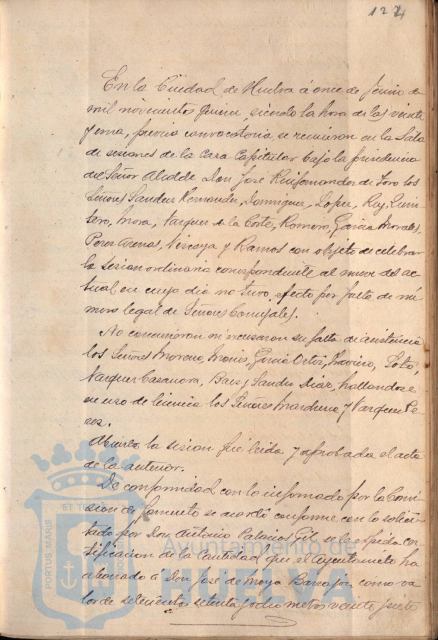 124
En la Ciudad de Huelva á once de Junio de
mil novecientos quince, siendo la hora de las veinte
y una, previa convocatoria se reunieron en la Sala
de sesiones de la Casa Capitular bajo la presidencia
del Señor Alcalde Don José Ruifernandez de Toro los
Señores Sanchez Hernandez, Dominguez, Lopez, Rey, Quin-
tero, Mora, Vazquez de la Corte, Romero, Garcia Morales,
Perez Arenas, y Ramos con objeto de celebrar
la sesion ordinaria correspondiente al nueve del ac-
tual, en cuyo dia no tuvo efecto por falta de nú-
mero legal de Señores Concejales.
No concurrieron ni excusaron su falta de asistencia
los Señores Moreno, Garcia Ortiz, Soto,
Vazquez Casanova, Baez y Sanchez Diaz, hallandose
en uso de licencia los Señores Marchena y Vazquez Pe-
rez.
Abierta la sesion fué leida y aprobada el acta
de la anterior.
De conformidad con lo informado por la Comi-
sion de Fomento se acordó conforme con lo solici-
tado por Don Antonio Palacios Gil se le expida cer-
tificacion de la cantidad que el Ayuntamiento ha
abonado á Don José de Moya como va-
lor de setecientos setenta y ocho metros veinte y siete
Ayuntamiento de
HUELVA
PORTUS MARIS
ET TERRAE